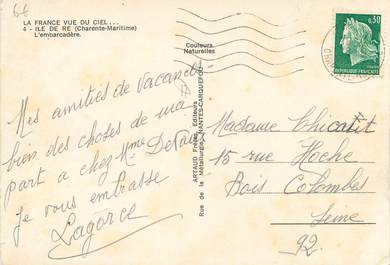 6€
LA FRANCE VUE DU CIEL...
4 - ILE DE RE (Charente-Maritime)
L'embarcadère.
Couleurs
Naturelles
0,30
REPUBLIQUE FRANÇAISE
Mes amitiés de vacances
bien des choses de ma
part à chez Mme
je vous embrasse
Lagorce
ARTAUD Frères, Éditeurs
Rue de la Métallurgie - NANTES-CARQUEFOU
Madame
15 rue Hoche
Bois Colombes
Seine
92.